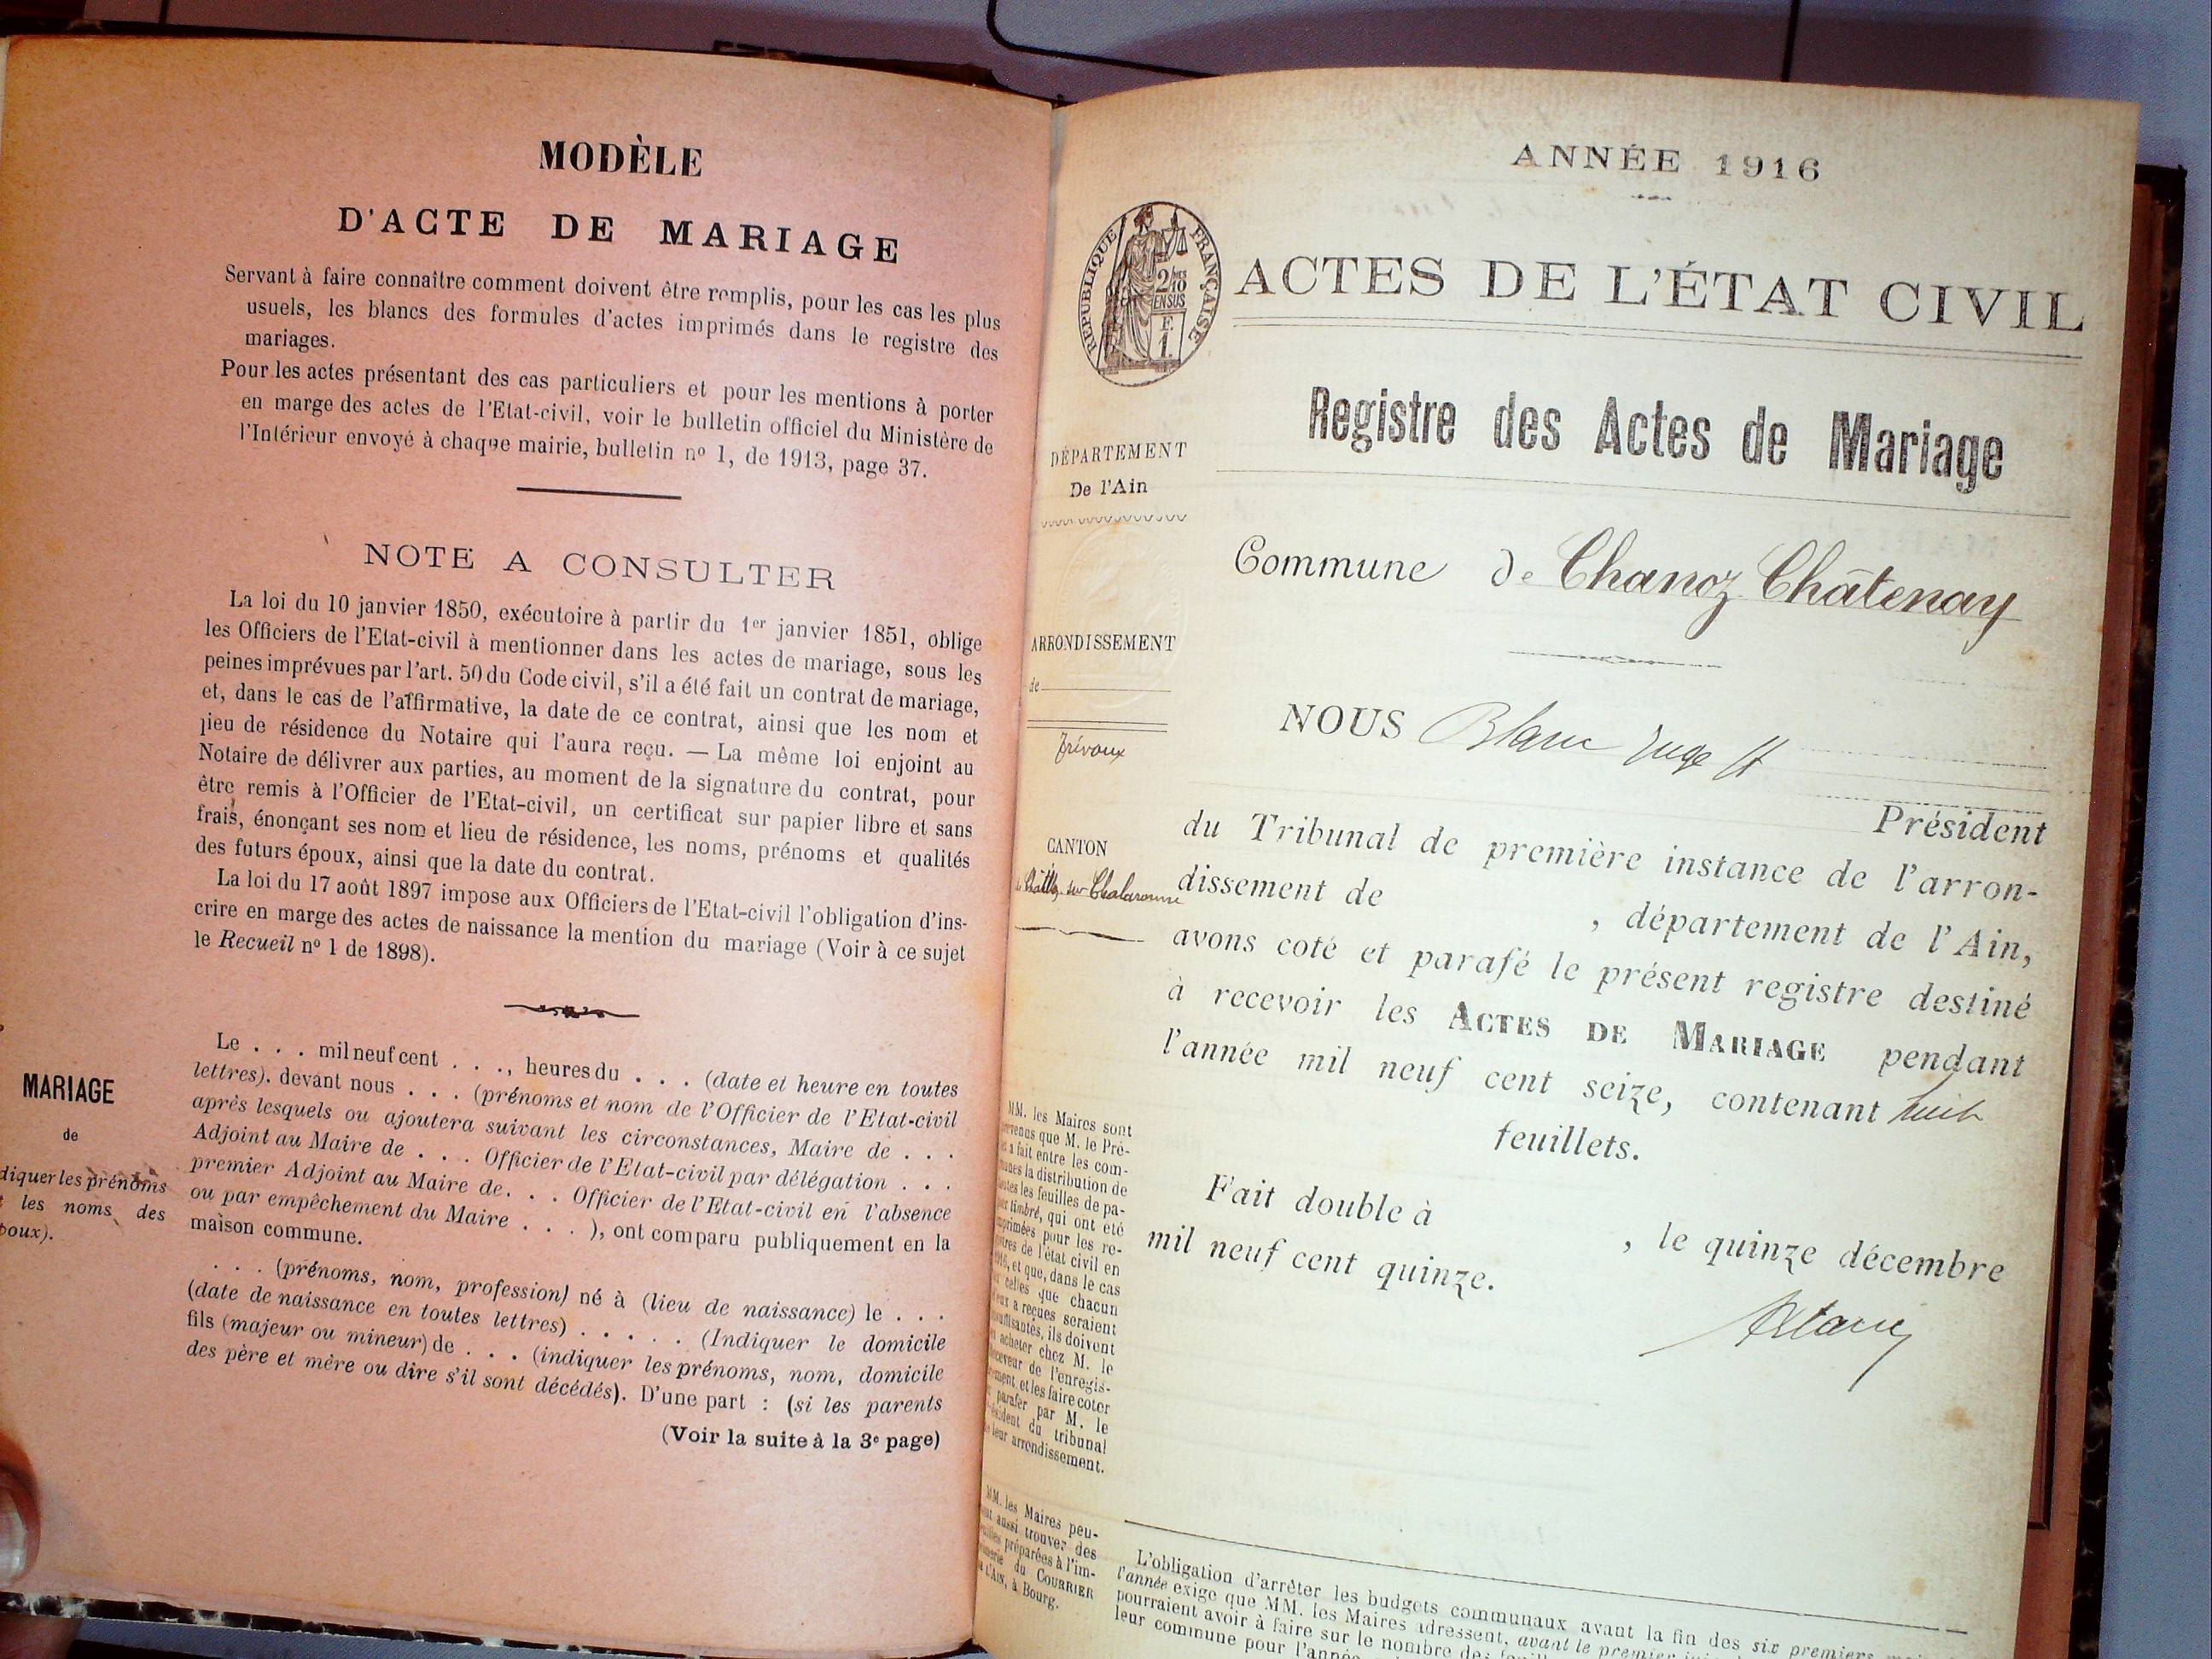 MODÈLE
D'ACTE DE MARIAGE
Servant à faire connaître comment doivent être remplis, pour les cas les plus
usuels, les blancs des formules d'actes imprimés dans le registre des
mariages.
Pour les actes présentant des cas particuliers et pour les mentions à porter
en marge des actes de l'Etat-civil, voir le bulletin officiel du Ministère de
l'Intérieur envoyé à chaque mairie, bulletin nº 1, de 1913, page 37.
NOTE A CONSULTER
La loi du 10 janvier 1850, exécutoire à partir du 1er janvier 1851, oblige
les Officiers de l'Etat-civil à mentionner dans les actes de mariage, sous les
peines imprévues par l'art. 50 du Code civil, s'il a été fait un contrat de mariage,
et, dans le cas de l'affirmative, la date de ce contrat, ainsi que les nom et
lieu de résidence du Notaire qui l'aura reçu. — La même loi enjoint au
Notaire de délivrer aux parties, au moment de la signature du contrat, pour
être remis à l'Officier de l'Etat-civil, un certificat sur papier libre et sans
frais, énonçant ses nom et lieu de résidence, les noms, prénoms et qualités
des futurs époux, ainsi que la date du contrat.
La loi du 17 août 1897 impose aux Officiers de l'Etat-civil l'obligation d'ins-
crire en marge des actes de naissance la mention du mariage (Voir à ce sujet
le Recueil nº 1 de 1898).
MARIAGE
de
diquer les prénoms
les noms des
poux).
Le . . . mil neuf cent . . ., heures du . . . (date et heure en toutes
lettres). devant nous . . . (prénoms et nom de l'Officier de l'Etat-civil
après lesquels ou ajoutera suivant les circonstances, Maire de . . .
Adjoint au Maire de . . . Officier de l'Etat-civil par délégation . . .
premier Adjoint au Maire de. . . Officier de l'Etat-civil en l'absence
ou par empêchement du Maire . . . ), ont comparu publiquement en la
maison commune.
. . . (prénoms, nom, profession) né à (lieu de naissance) le . . .
(date de naissance en toutes lettres) . . . . . (Indiquer le domicile
fils (majeur ou mineur) de . . . (indiquer les prénoms, nom, domicile
des père et mère ou dire s'il sont décédés). D'une part : (si les parents
(Voir la suite à la 3e page)
ANNÉE 1916
REPUBLIQUE FRANÇAISE
2/10
EN SUS
E.
1.
ACTES DE L'ÉTAT CIVIL
Registre des Actes de Mariage
DÉPARTEMENT
De l'Ain
Commune de Chanoz Châtenay
ARRONDISSEMENT
de
Trévoux
NOUS Blanc Juge
Président
CANTON
de Châtillon sur Chalaronne
du Tribunal de première instance de l'arron-
dissement de , département de l'Ain,
avons coté et parafé le présent registre destiné
à recevoir les ACTES DE MARIAGE pendant
l'année mil neuf cent seize, contenant huit
feuillets.
Fait double à , le quinze décembre
mil neuf cent quinze.
Blanc
MM. les Maires sont
prévenus que M. le Pré-
fet a fait entre les com-
munes la distribution de
toutes les feuilles de pa-
pier timbré, qui ont été
imprimées pour les re-
gistres de l'état civil en
1916, et que, dans le cas
où celles que chacun
d'eux a reçues seraient
insuffisantes, ils doivent
en acheter chez M. le
Receveur de l'enregis-
trement, et les faire coter
et parafer par M. le
Président du tribunal
de leur arrondissement.
MM. les Maires peu-
vent aussi trouver des
feuilles préparées à l'im-
primerie du COURRIER
de l'AIN, à Bourg.
L'obligation d'arrêter les budgets communaux avant la fin des six premiers
l'année exige que MM. les Maires adressent, avant le premier
pourraient avoir à faire sur le nombre des
leur commune pour l'année